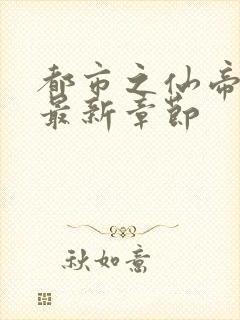 都市之仙帝
最新章节
秋如意